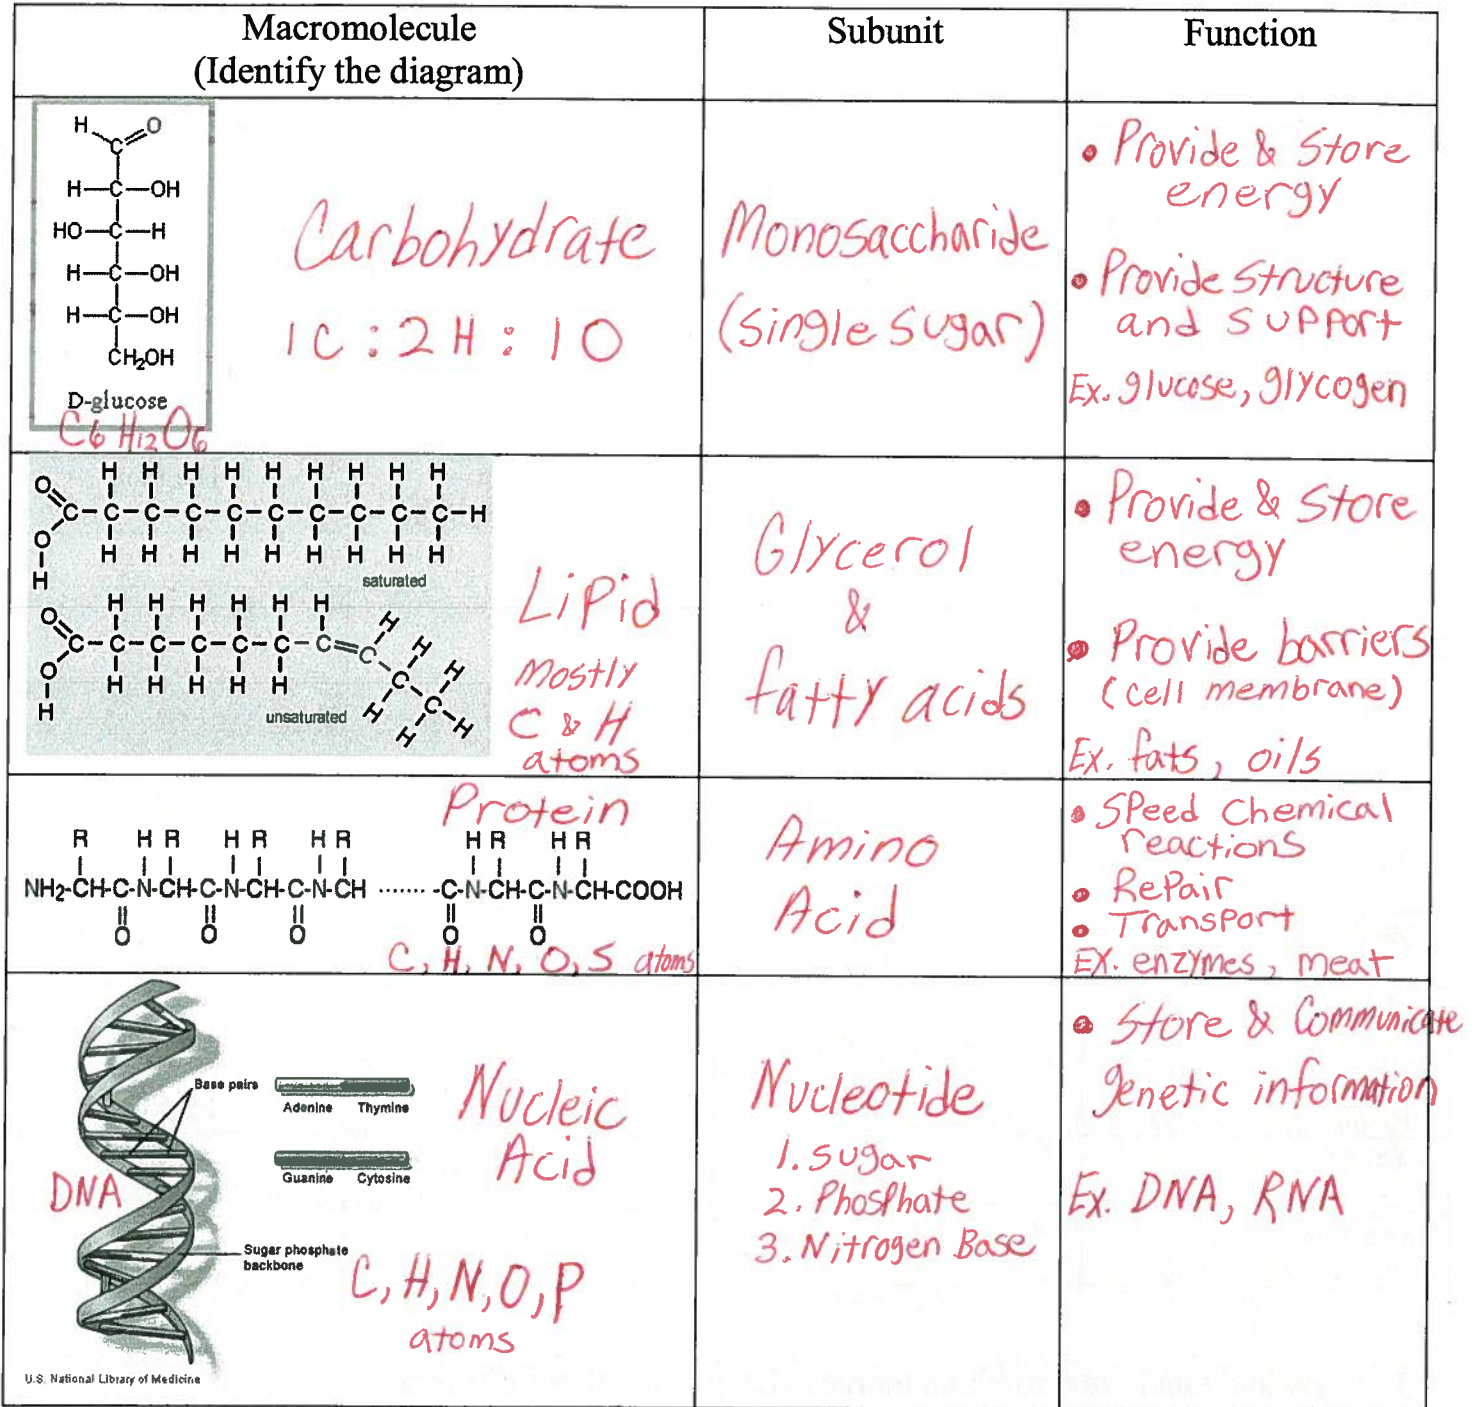 Macromolecule
(Identify the diagram)
Subunit
Function
H O
C
H—C—OH
HO—C—H
H—C—OH
H—C—OH
CH₂OH
D-glucose
C6 H12 O6
Carbohydrate
1C : 2H : 1O
Monosaccharide
(single sugar)
• Provide & Store
energy
• Provide structure
and support
Ex. glucose, glycogen
H H H H H H H H H
O
C-C-C-C-C-C-C-C-C-C-H
O
H H H H H H H H H
H
saturated
H H H H H H
O
C-C-C-C-C-C-C=C
O
H H H H H
H
H
H
H
C
C
H
H
H
unsaturated
Lipid
mostly
C & H
atoms
Glycerol
&
fatty acids
• Provide & Store
energy
• Provide barriers
(cell membrane)
Ex. fats, oils
Protein
R H R H R H R H R H R
NH2-CH-C-N-CH-C-N-CH-C-N-CH ....... -C-N-CH-C-N-CH-COOH
O O O O O
C, H, N, O, S atoms
Amino
Acid
• Speed Chemical
reactions
• Repair
• Transport
Ex. enzymes, meat
Base pairs
Adenine Thymine
Guanine Cytosine
DNA
Sugar phosphate
backbone
Nucleic
Acid
C, H, N, O, P
atoms
U.S. National Library of Medicine
Nucleotide
1. Sugar
2. Phosphate
3. Nitrogen Base
• Store & Communicate
genetic information
Ex. DNA, RNA